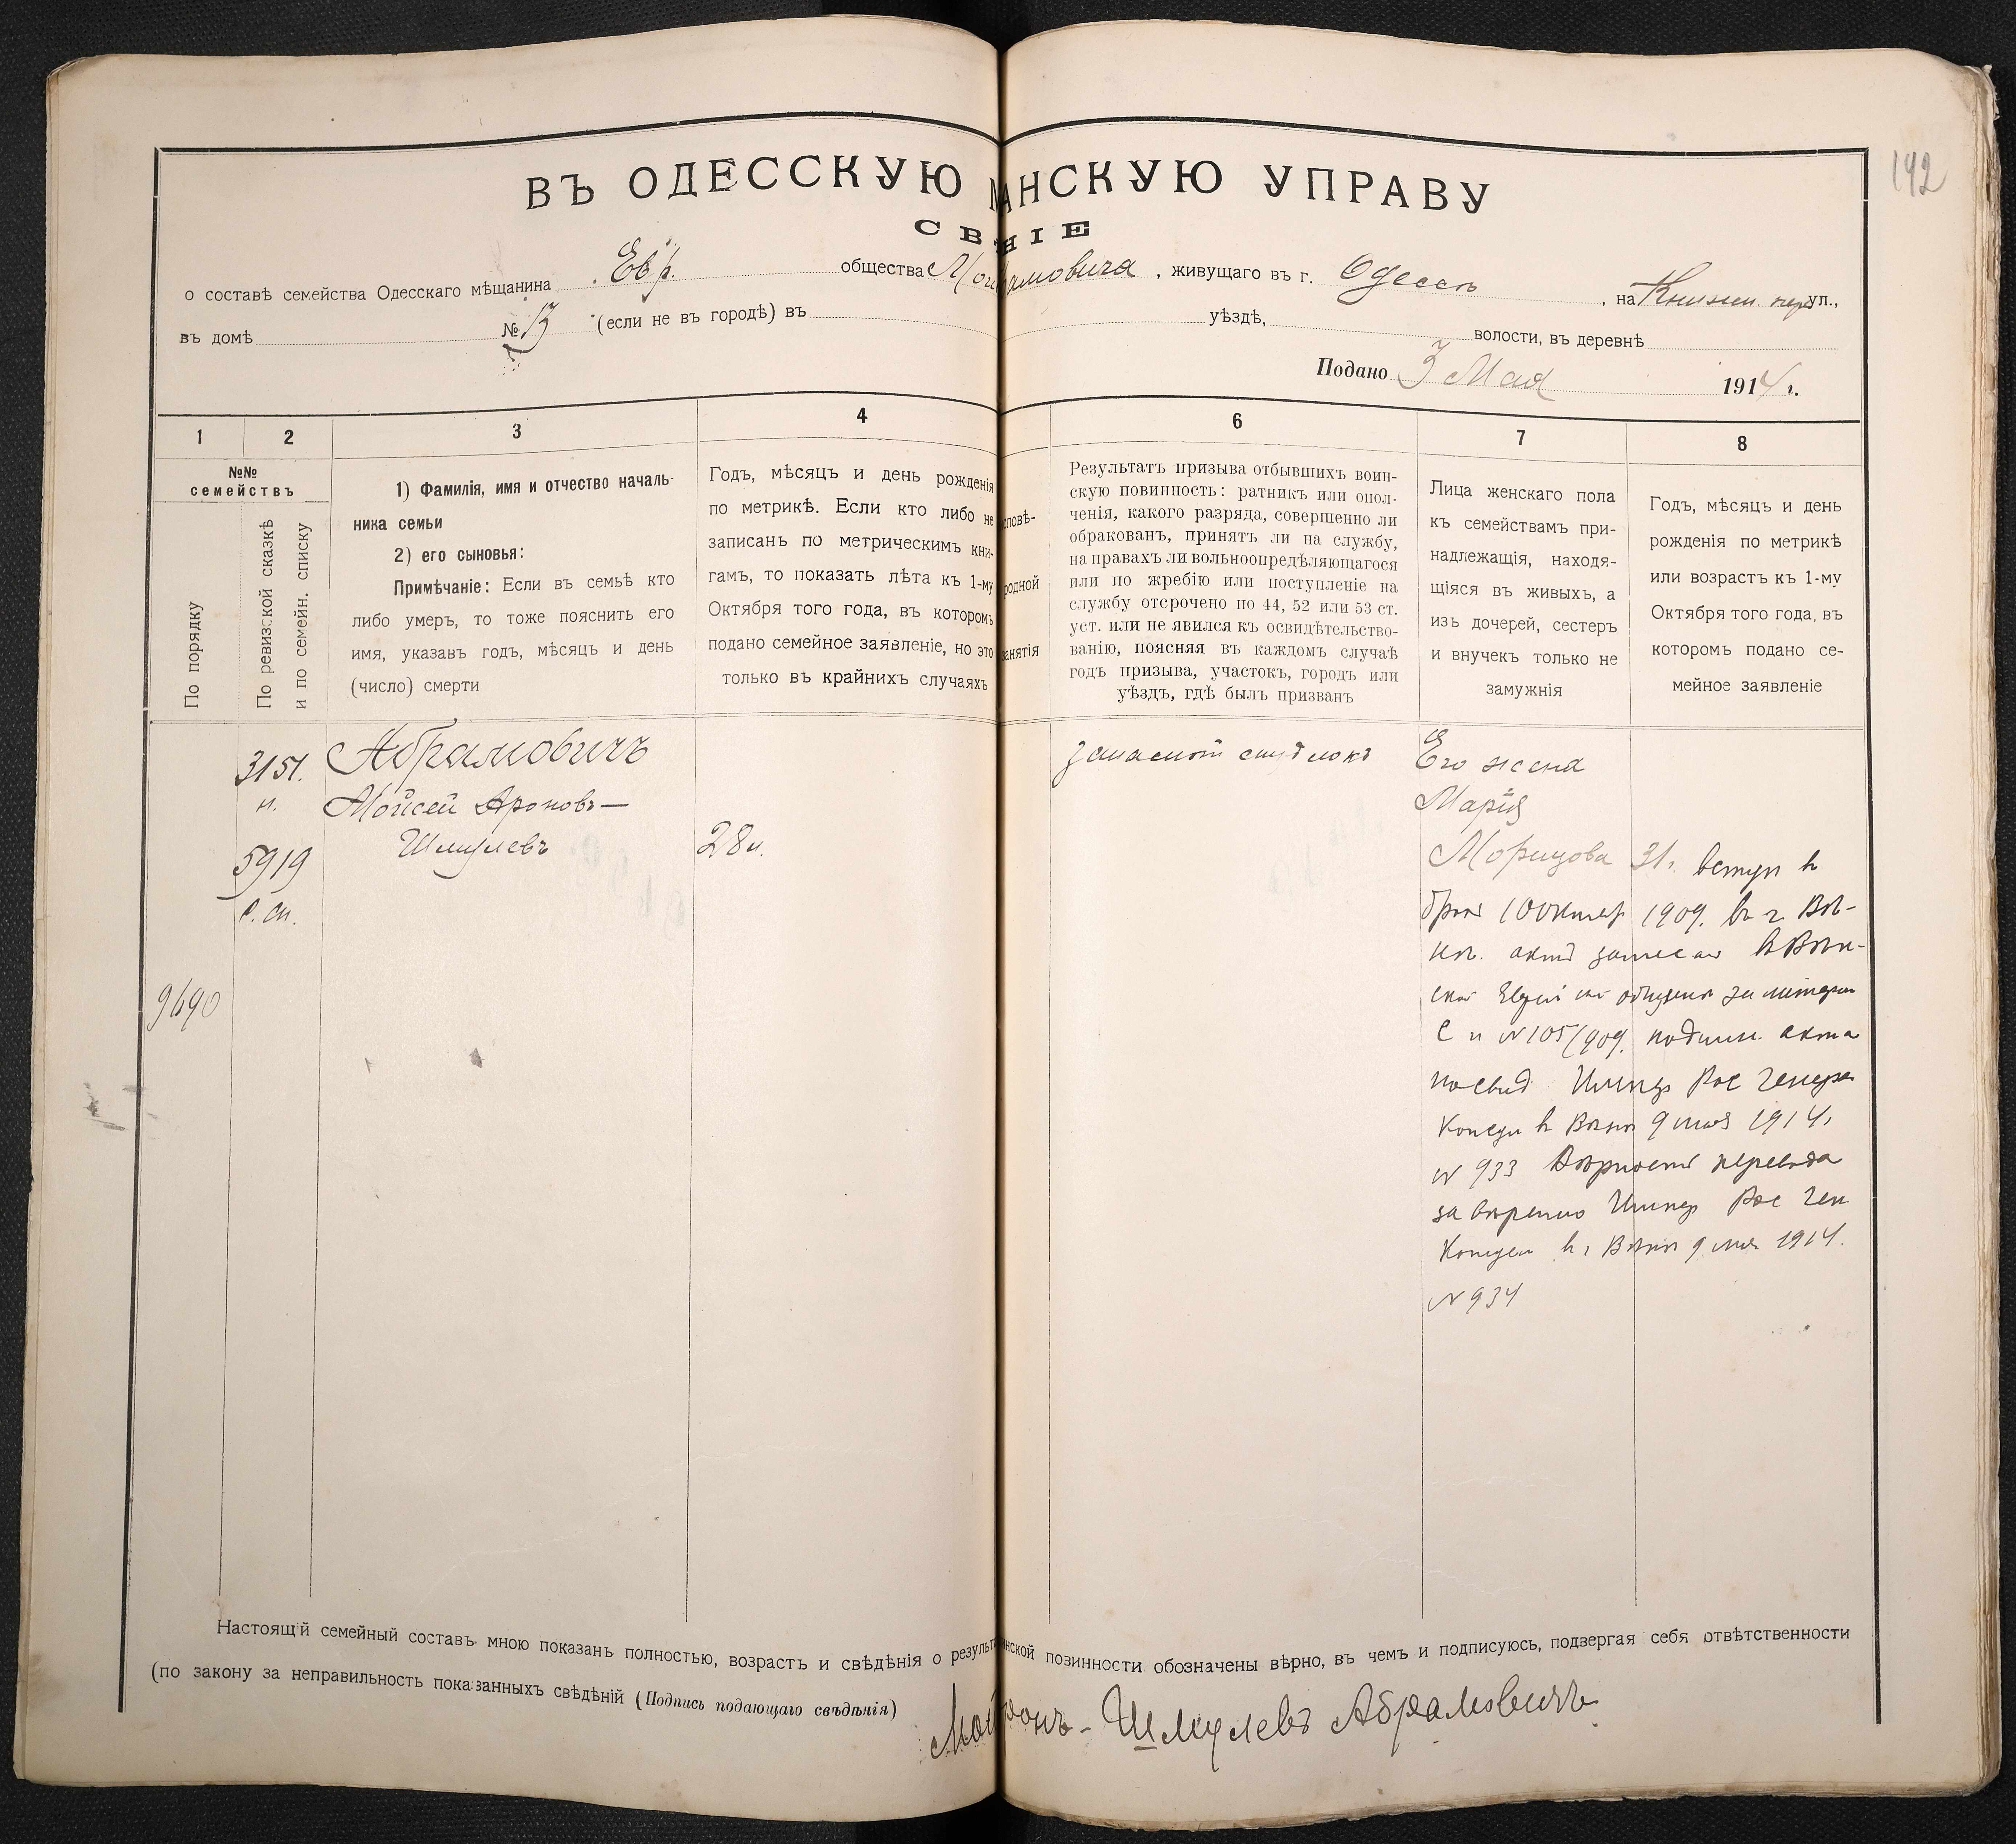 142
ВЪ ОДЕССКУЮ АНСКУЮ УПРАВУ
СВ НІЕ
о составѣ семейства Одесскаго мѣщанина Евр. общества амовича, живущаго въ г. Одессѣ, на Княжи ул.,
въ домѣ № 13 (если не въ городѣ) въ уѣздѣ, волости, въ деревнѣ
Подано 3 Мая 1914 г.
1 2 3 4 6 7 8
№№
семействъ
По порядку
По ревизской сказкѣ
и по семейн. списку
1) Фамилія, имя и отчество началь-
ника семьи
2) его сыновья:
Примѣчаніе: Если въ семьѣ кто
либо умеръ, то тоже пояснить его
имя, указавъ годъ, мѣсяцъ и день
(число) смерти
Годъ, мѣсяцъ и день рожденія
по метрикѣ. Если кто либо не
записанъ по метрическимъ кни-
гамъ, то показать лѣта къ 1-му
Октября того года, въ которомъ
подано семейное заявленіе, но это
только въ крайнихъ случаяхъ
сповѣ-
родной
занятія
Результатъ призыва отбывшихъ воин-
скую повинность: ратникъ или опол-
ченія, какого разряда, совершенно ли
обракованъ, принятъ ли на службу,
на правахъ ли вольноопредѣляющагося
или по жребію или поступленіе на
службу отсрочено по 44, 52 или 53 ст.
уст. или не явился къ освидѣтельство-
ванію, поясняя въ каждомъ случаѣ
годъ призыва, участокъ, городъ или
уѣздъ, гдѣ былъ призванъ
Лица женскаго пола
къ семействамъ при-
надлежащія, находя-
щіяся въ живыхъ, а
изъ дочерей, сестеръ
и внучекъ только не
замужнія
Годъ, мѣсяцъ и день
рожденія по метрикѣ
или возрастъ къ 1-му
Октября того года, въ
которомъ подано се-
мейное заявленіе
9690
3151.
5919
с. сп.
Абрамовичъ
Мойсей Ароновъ—
Шмулевъ
28 л.
Его жена
Марія
Морицова 31 г. вступ в
брак 10 Октяр 1909. въ г. Вѣ-
нѣ. актъ записан в Вѣн-
ской общинѣ за литерой
С и № 105/909. подлин. акта
Импер Рос Генера
Консул в Вѣнѣ 9 мая 1914,
№ 933 Вѣрность перевода
завѣрено Импер Рос Ген
Консул в г Вѣнѣ 9 мая 1914.
№ 934
Настоящій семейный составъ мною показанъ полностью, возрастъ и свѣдѣнія о результа инской повинности обозначены вѣрно, въ чемъ и подписуюсь, подвергая себя отвѣтственности
(по закону за неправильность показанныхъ свѣдѣній (Подпись подающаго свѣдѣнія)
Мой ронъ-Шмулевъ Абрамовичъ